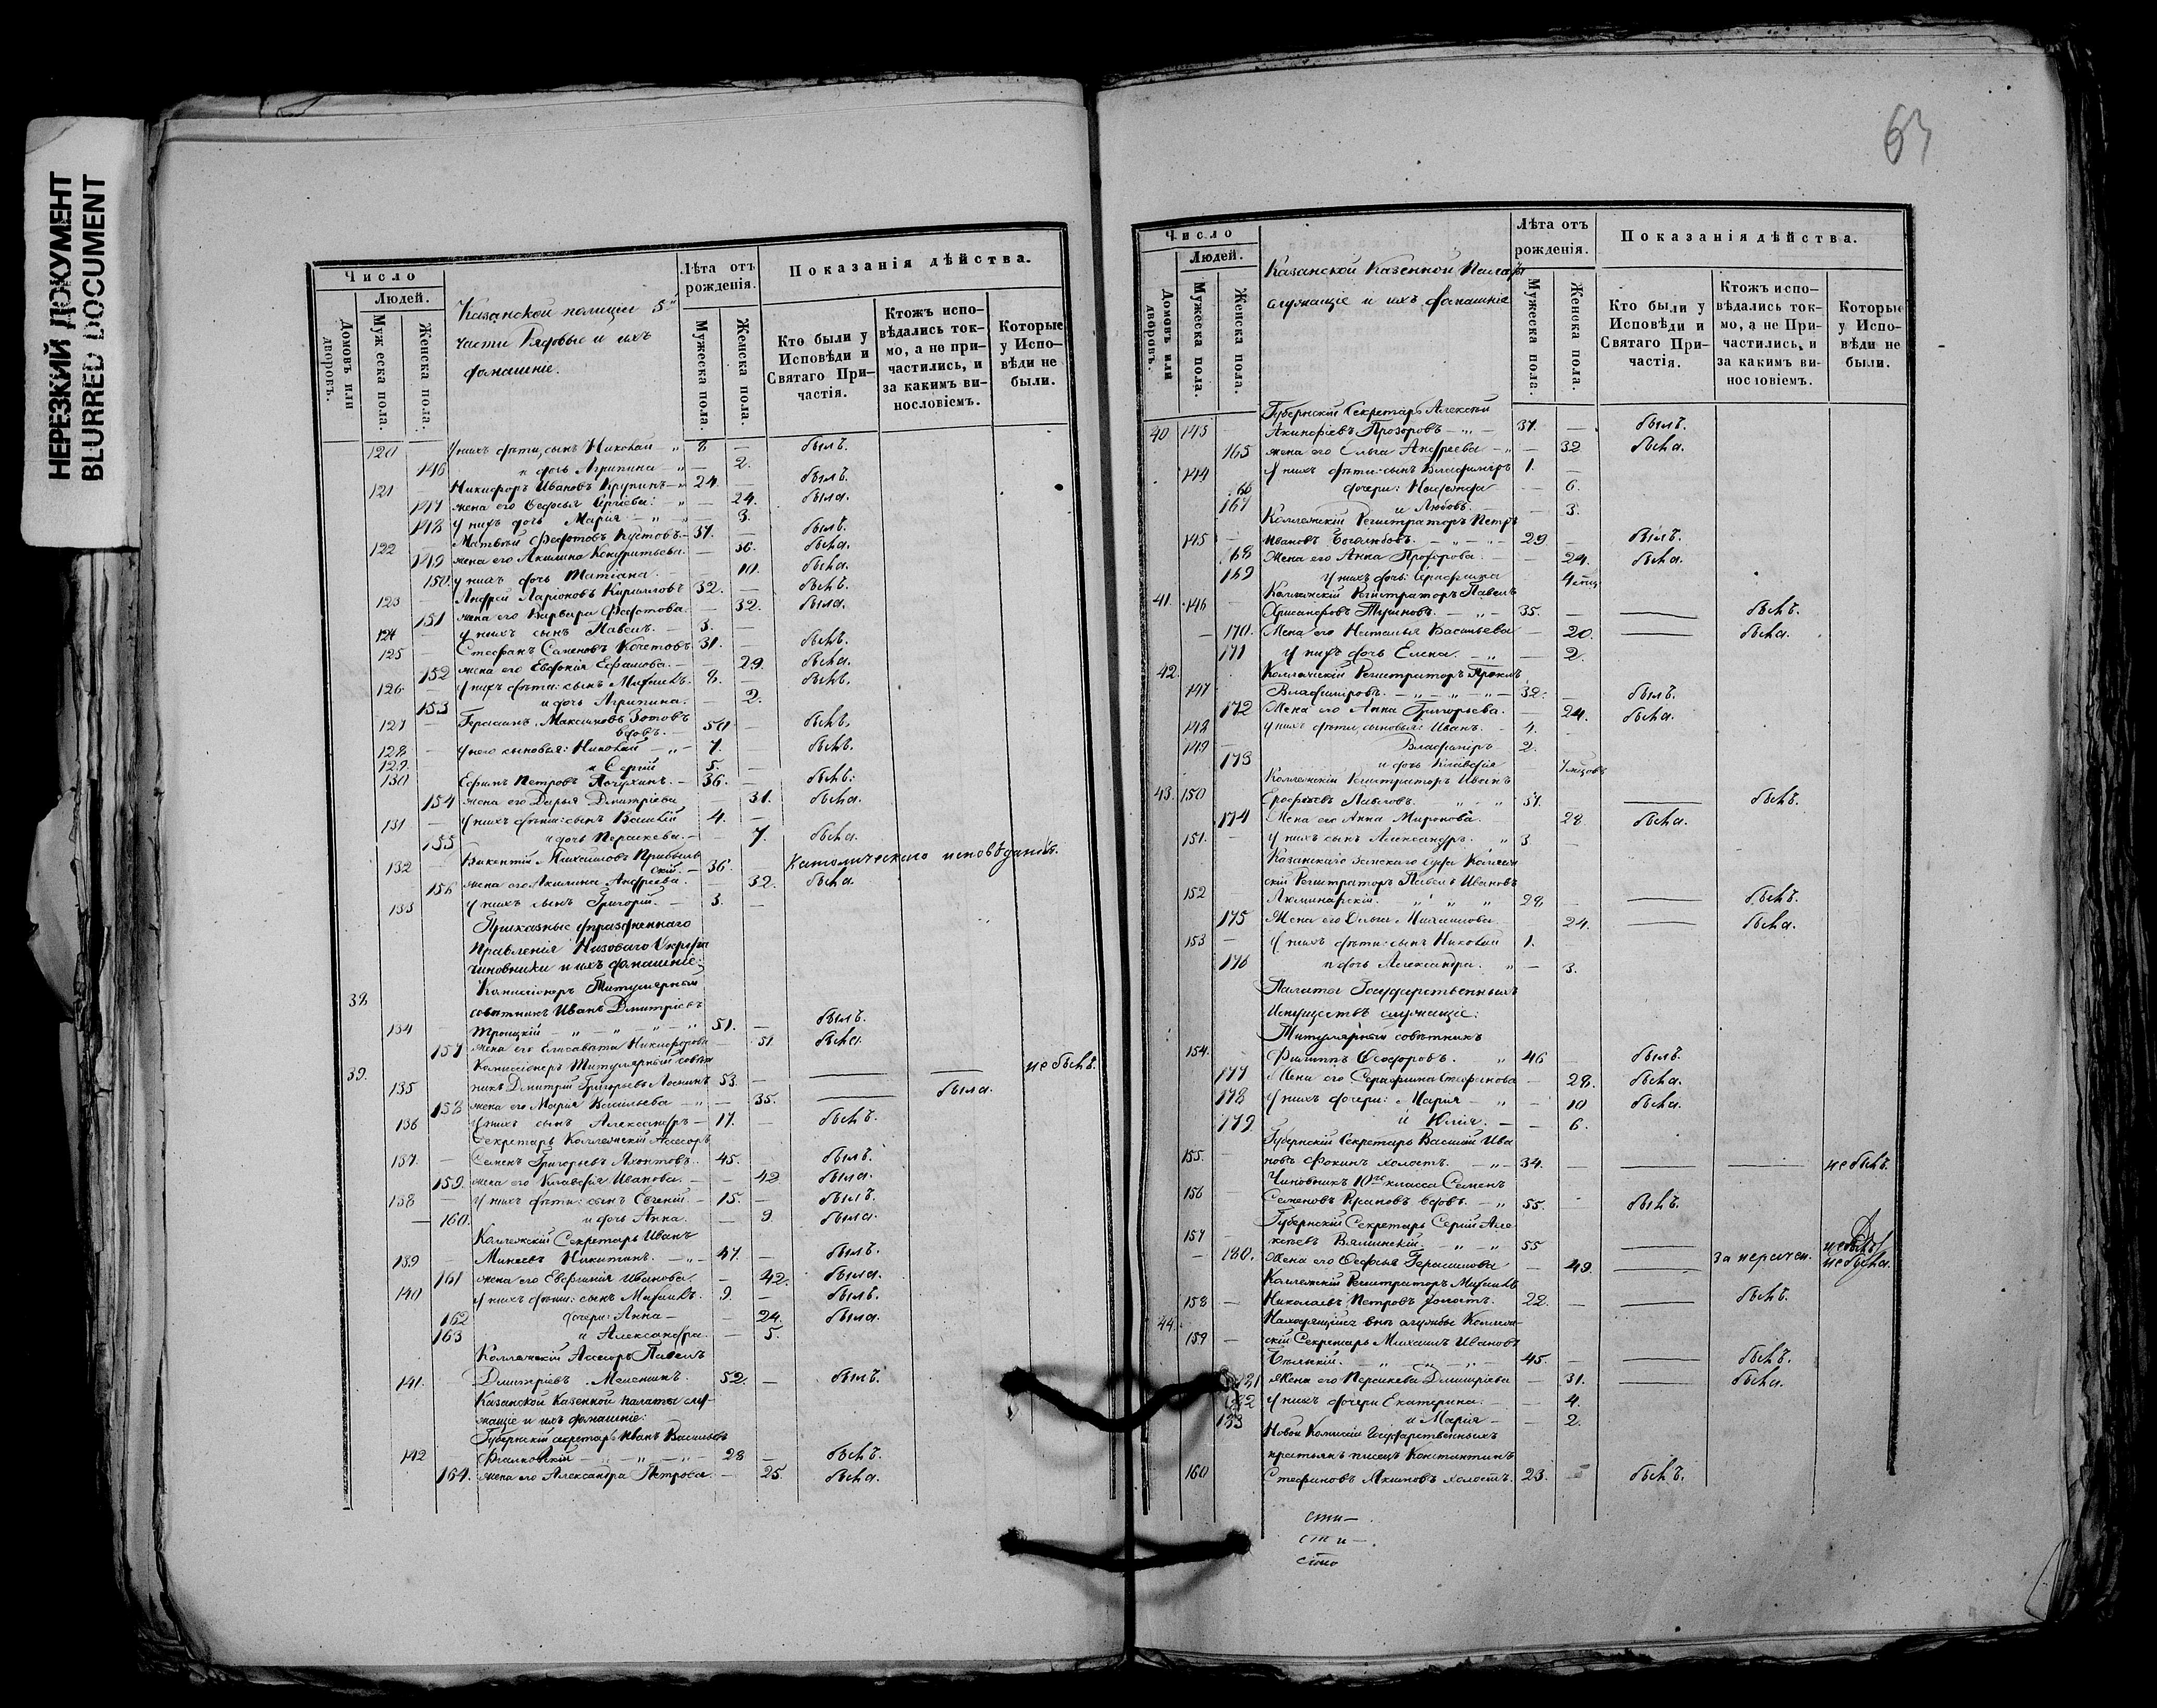 НЕРЕЗКИЙ ДОКУМЕНТ
BLURRED DOCUMENT
Число
Людей.
Домовъ или дворовъ.
Мужеска пола.
Женска пола.
Казанской полиціи 5й
части Рядовые и ихъ
домашніе.
Лѣта отъ рожденія.
Мужеска пола.
Женска пола.
Показанія дѣйства.
Кто были у Исповѣди и Святаго Причастія.
Ктожъ исповѣдались токмо, а не причастились, и за какимъ винословіемъ.
Которые у Исповѣди не были.
120 У нихъ дѣти, сынъ Николай 8 былъ.
146 и дочь Агрипина 2.
121 Никифоръ Ивановъ Крупинъ 24. былъ.
147 жена его Софья 24. была.
148 у нихъ дочь Марія 3.
122 Матвѣй Федотовъ Кустовъ 37. былъ.
149 жена его Акилина 36. была.
150 у нихъ дочь Татіана 10. была.
123 Андрей Ларіоновъ Кириловъ 32. былъ.
151 жена его Варвара Федотова. 32. была.
124 у нихъ сынъ Павелъ. 3.
125 Стефанъ Семеновъ Кочетовъ 31. былъ.
152 жена его Евдокія Ефимова. 29. была.
126 у нихъ дѣти: сынъ Михаилъ. 8. былъ.
153 и дочь Агрипина. 2.
127 Герасимъ Максимовъ Зотовъ
вдовъ. 50 былъ.
128 У него сыновья: Николай 7. былъ.
129 и Сергій 5.
130 Ефимъ Петровъ 36. былъ.
154 жена его Дарья Дмитріева 31. была.
131 У нихъ дѣти: сынъ Василій 4.
155 и дочь Параскева. 7. была.
132 Викентій Михайловъ Прибыль
скій. 36. Католическаго исповѣданія.
156 жена его Акилина Андреева. 32. была.
133 У нихъ сынъ Григорій. 3.
Приказные упраздненнаго
Правленія Низоваго Округа
чиновники и ихъ домашніе:
38 Комиссіонеръ Титулярный
совѣтникъ Иванъ Дмитріевъ
134 Троицкій 51. былъ.
157 жена его Елисавета Никифорова 51 была.
39. Комиссіонеръ Титулярный совѣт
135 никъ Дмитрій Григорьевъ 53. не былъ.
158 жена его Марія Васильева 35. была.
136 У нихъ сынъ Александръ 17. былъ.
Секретарь Коллежскій Асессоръ
137. Семенъ Григорьевъ Ахонтовъ. 45. былъ.
159. жена его Клавдія Иванова. 42 была.
138 У нихъ дѣти: сынъ Евгеній. 15. былъ.
160. и дочь Анна. 9. была.
Коллежскій Секретарь Иванъ
139 Минеевъ Никитинъ. 47. былъ.
161 жена его Евфимія Иванова. 42. была.
140 У нихъ дѣти: сынъ Михаилъ. 9. былъ.
162 дочери: Анна 24. была.
163 и Александра 5.
Коллежскій Асессоръ Павелъ
141. Дмитріевъ 52. былъ.
Казанской Казенной палаты слу-
жащіе и ихъ домашніе:
Губернскій секретарь Иванъ Васильевъ
142 28 былъ.
164. жена его Александра Петрова 25. была.
63
Число
Людей.
Домовъ или дворовъ.
Мужеска пола.
Женска пола.
Казанской Казенной Палаты
служащіе и ихъ домашніе
Лѣта отъ рожденія.
Мужеска пола.
Женска пола.
Показанія дѣйства.
Кто были у Исповѣди и Святаго Причастія.
Ктожъ исповѣдались токмо, а не Причастились, и за какимъ винословіемъ.
Которые у Исповѣди не были.
Губернскій Секретарь Алексей
40 143 Акинфіевъ Прозоровъ 37. былъ.
165 жена его Ольга Андреева 32 была.
144 У нихъ дѣти: сынъ Владиміръ 1.
166 дочери: Надежда 6.
167 и Любовь. 3.
Коллежскій Регистраторъ Петръ
145 Ивановъ Боголюбовъ. 29 былъ.
168 Жена его Анна Прохорова. 24. была.
169 У нихъ дочь:
41. Коллежскій Регистраторъ Павелъ
146 35. былъ.
170. Жена его Наталья Васильева 20. была.
171 У нихъ дочь Елена. 2.
42. Коллежскій Регистраторъ
147 Владиміровъ. 32. былъ.
172 Жена его Анна Григорьева. 24. была.
148 У нихъ дѣти, сыновья: Иванъ. 4.
149 Владиміръ 2.
173 и дочь Клавдія
Коллежскій Регистраторъ Иванъ
43. 150 Ерофеевъ Павловъ. 37. былъ.
174 Жена его Анна Миронова. 28 была.
151. У нихъ сынъ Александръ. 3
Казанскаго Земскаго Суда Коллеж
скій Регистраторъ Павелъ Ивановъ
152 28 былъ.
175 Жена его Ольга Михайлова 24. была.
153 У нихъ дѣти: сынъ Николай 1.
176 и дочь Александра. 3.
Палаты Государственныхъ
Имуществъ служащіе:
Титулярный совѣтникъ
154. Филиппъ Феодоровъ. 46 былъ.
177 Жена его Серафима Стефанова 28. была.
178 У нихъ дочери: Марія 10 была.
179 и Юлія. 6.
Губернскій Секретарь Василій Ива
155. новъ Фокинъ холостъ. 34. не былъ.
Чиновникъ 10го класса Семенъ
156 Семеновъ вдовъ. 55. былъ.
Губернскій Секретарь Сергій Але
157 ксѣевъ 55 не былъ
180. Жена его Софья Герасимова 49. не была.
Коллежскій Регистраторъ Михаилъ
158 Николаевъ Петровъ холостъ. 22. былъ.
44. Находящійся внѣ службы Коллеж-
159 скій Секретарь Михаилъ Ивановъ
Бѣльскій. 45. былъ.
181 Жена его Параскева Дмитріева 31. была.
182 У нихъ дочери Екатерина. 4.
183 и Марія 2.
Новой Комисіи Государственныхъ
крестьянъ писецъ Константинъ
160 Стефановъ Акимовъ холостъ. 23. былъ.